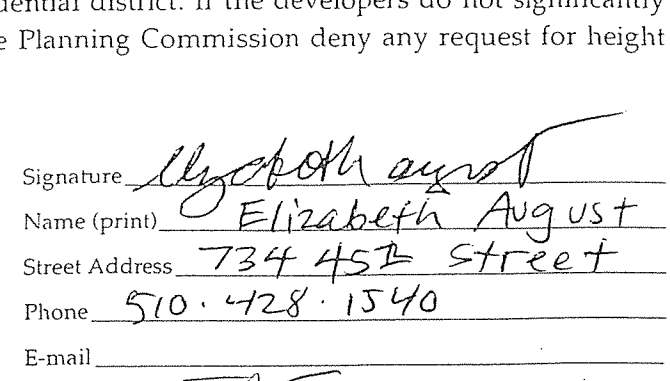 dential district. If the developers do not significantly
e Planning Commission deny any request for height
Signature Elizabeth August
Name (print) Elizabeth August
Street Address 734 45th Street
Phone 510·428·1540
E-mail